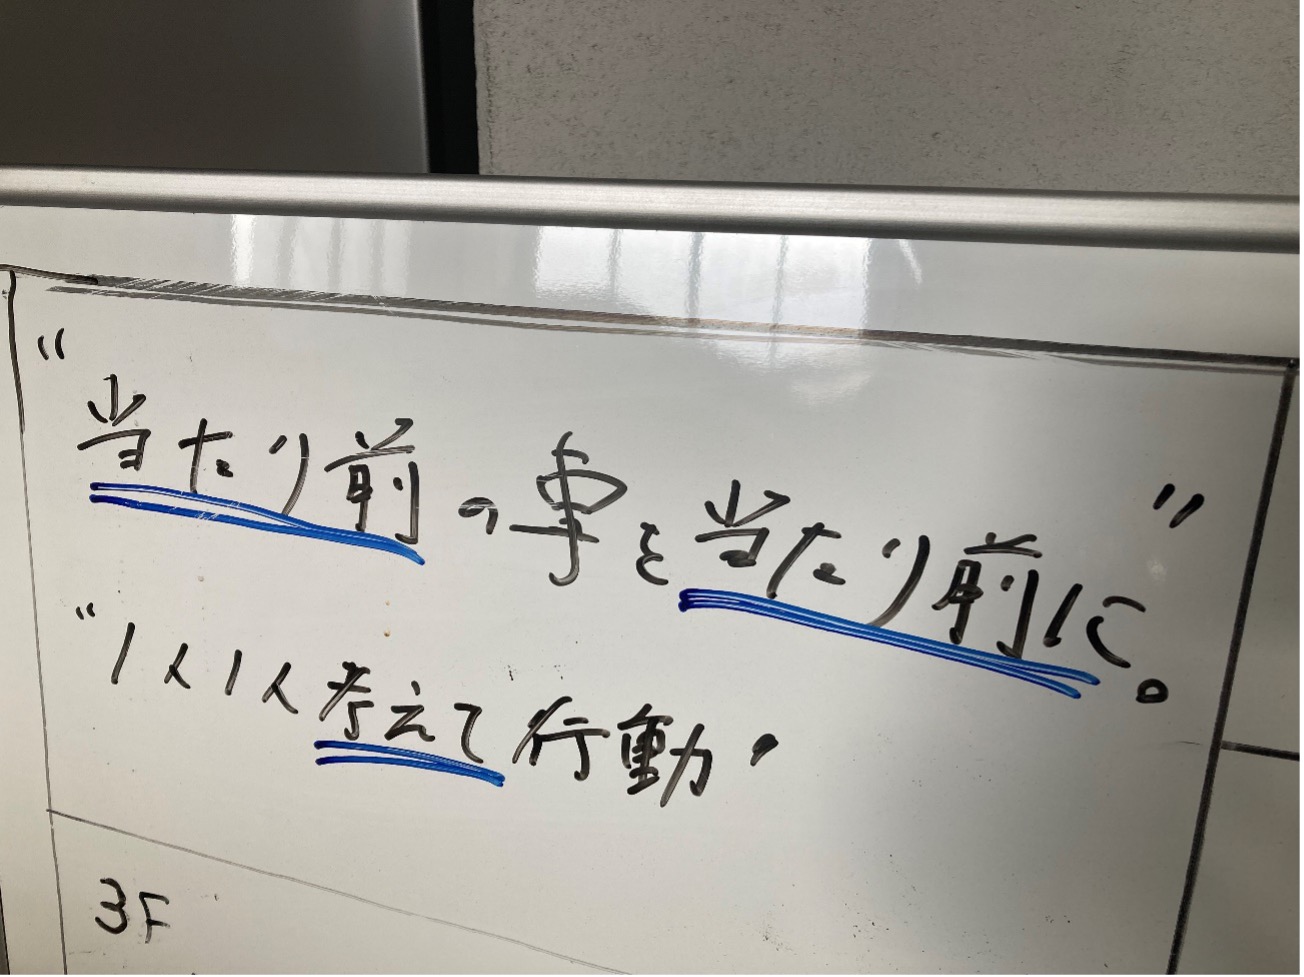 “当たり前の事を当たり前に。”
“1人1人考えて行動”
3F